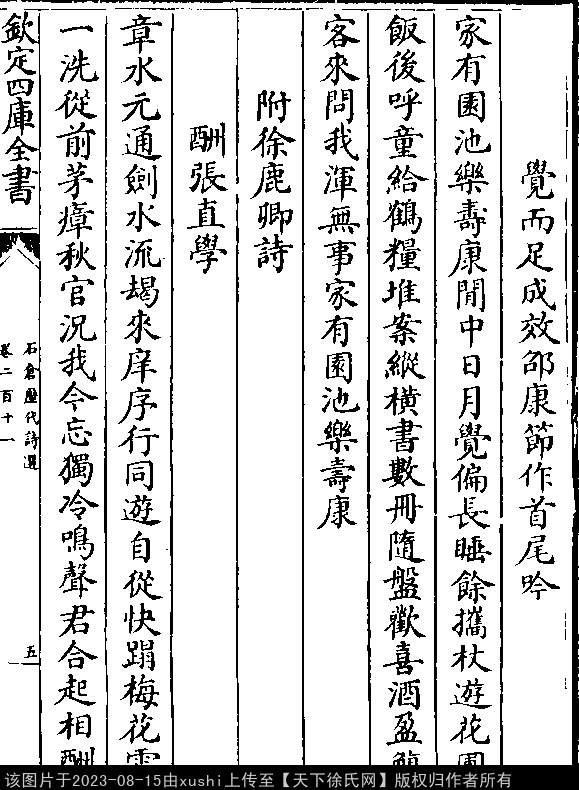 覺而足成效邵康節作首尾吟
家有園池樂壽康閒中日月覺偏長睡餘攜杖遊花圃
飯後呼童給鶴糧堆案縱橫書數冊隨盤歡喜酒盈觴
客來問我渾無事家有園池樂壽康
附徐鹿卿詩
酬張直學
章水元通劍水流朅來庠序行同遊自從快蹋梅花雪
一洗從前茅瘴秋官況我今忘獨冷鳴聲君合起相酬
欽定四庫全書
石倉歷代詩選
卷二百十一
五
该图片于2023-08-15由xushi上传至【天下徐氏网】版权归作者所有